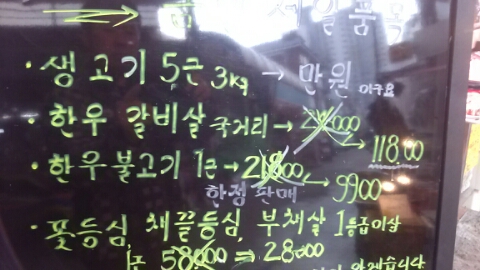 세일품목
· 생고기 5근 3kg → 만원
· 한우 갈비살 국거리 → 118.00
· 한우불고기 1근 → 21800 → 9900
한정판매
· 꽃등심, 채끝등심, 부채살 1등급이상
58000 ⇒ 28000